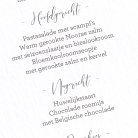 - Hoofdgerecht -
Pastasalade met scampi's
Warm gerookte Noorse zalm
met seizoenslaatje en bieslookroom
Bloemkoolroomsoepje
met gerookte zalm en kervel
- Nagerecht -
Huwelijkstaart
Chocolade roomijs
met Belgische chocolade